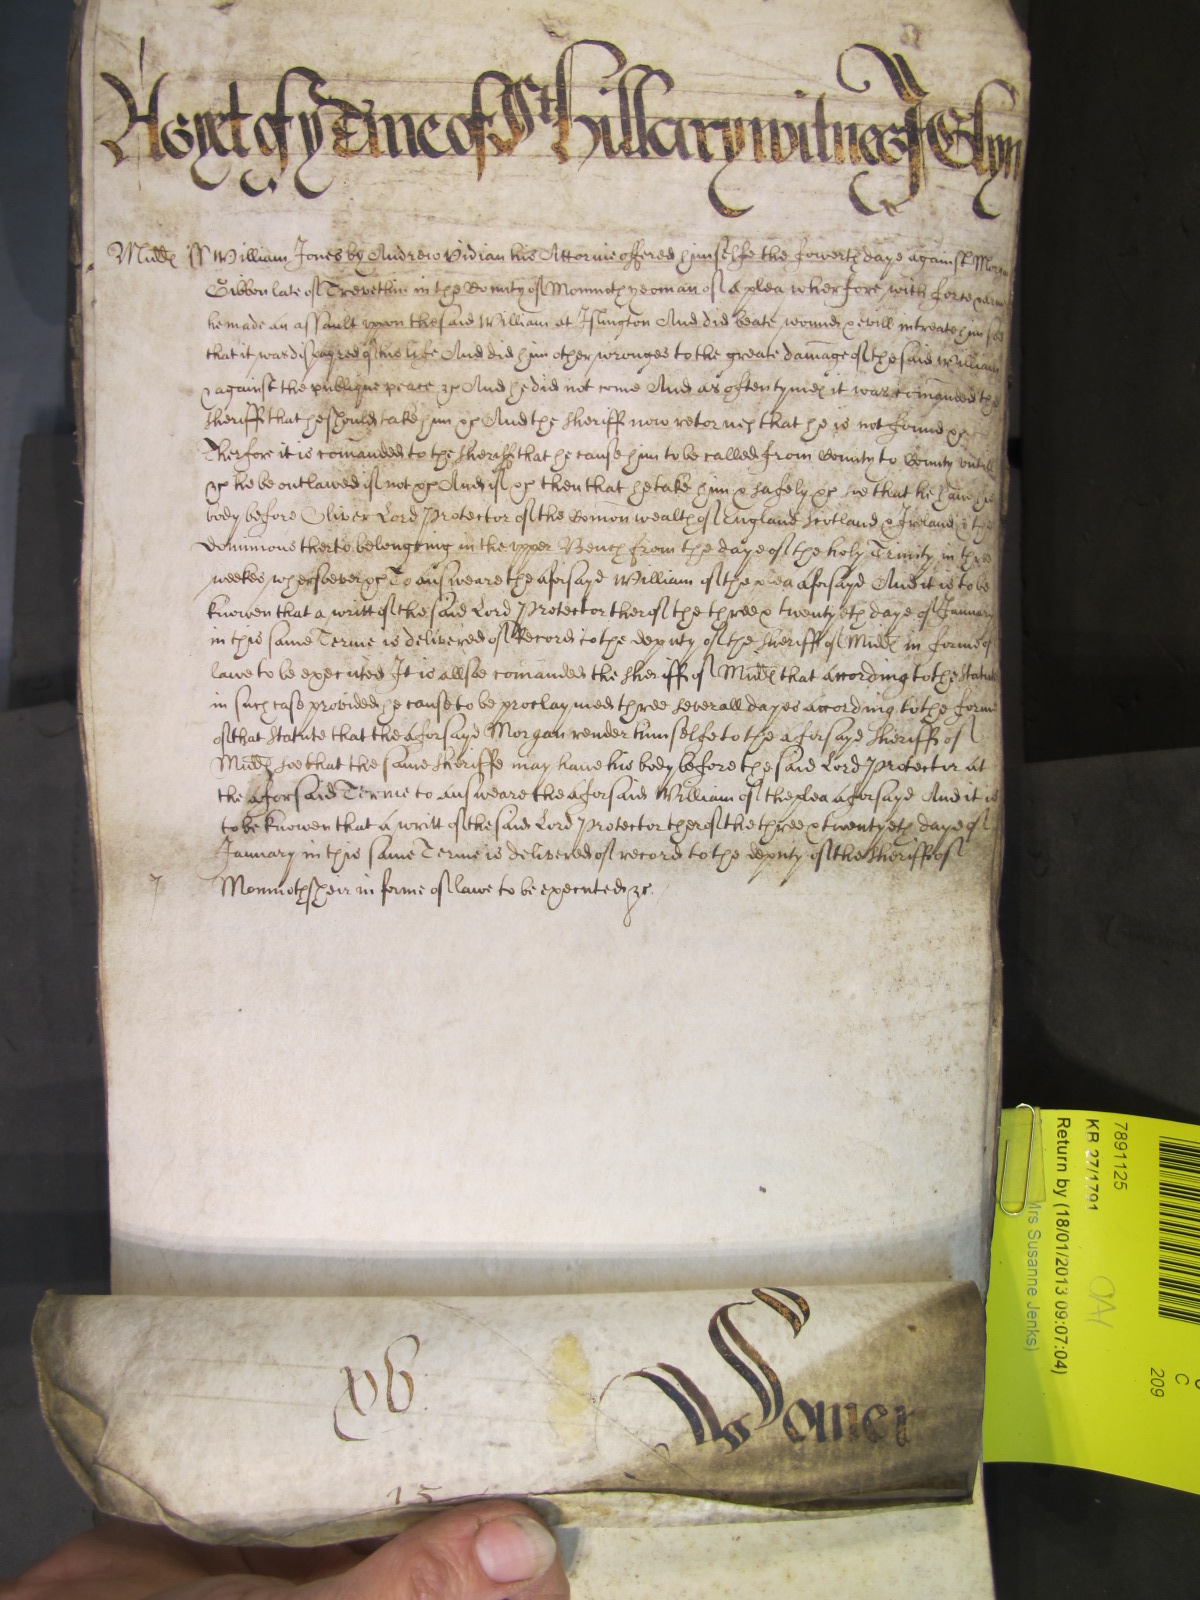 As yet of ye Terme of St Hillary witnes J Glyn
Midds ss William Jones by Andrew Vidian his Attornie offered himselfe the fowerth daye against Morgan
Gibbon late of Trevethin in the County of Monmoth yeoman of a plea wherfore with force & armes
he made an assault vpon the said William at Islington And did beate wound & evill intreate him soe
that it was dispayred of his life And did him other wronges to the greate damage of the said William
& against the publique peace &c And he did not come And as often tymes it was comanded the
Sheriff that he should take him &c And the Sheriff now retorneth that he is not found &c
Therfore it is comanded to the Sheriff that he cause him to be called from County to County vntill
&c he be outlawed if not &c And if &c then that he take him & safely &c soe that he have his
body before Oliver Lord Protector of the Comon wealth of England Scotland & Ireland & the
Dominions therto belonging in the vpper Bench from the daye of the holy Trinity in three
weekes whersoever &c To answeare the aforsayd William of the plea aforsayd And it is to be
knowen that a writt of the said Lord Protector therof the three & twentyeth daye of January
in this same Terme is delivered of Record to the deputy of the Sheriff of Midds in forme of
lawe to be executed It is allsoe comanded the Sheriff of Midds that according to the Statute
in such case provided he cause to be proclaymed three severall dayes according to the forme
of that Statute that the aforsayd Morgan render himselfe to the aforsayd Sheriff of
Midds soe that the same Sheriffe may have his body before the said Lord Protector at
the aforsaid Terme to answeare the aforsaid William of the plea aforsayd And it is
to be knowen that a writt of the said Lord Protector therof the three & twentyeth daye of
January in this same Terme is delivered of record to the deputy of the Sheriff of
Monmothsheir in forme of lawe to be executed &c.
xvi
15
7891125
KB 27/1791
Return by (18/01/2013 09:07:04)
Mrs Susanne Jenks)
C
209